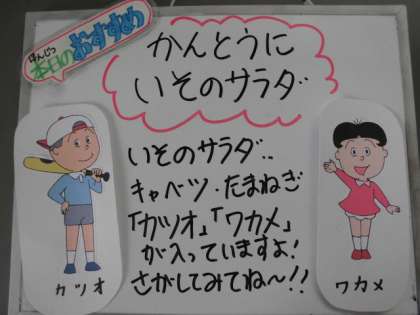 ほんじつ
本日のおすすめ
かんとうに
いそのサラダ
いそのサラダ‥
キャベツ・たまねぎ
「カツオ」「ワカメ」
が入っていますよ!
さがしてみてね〜!!
カツオ
ワカメ